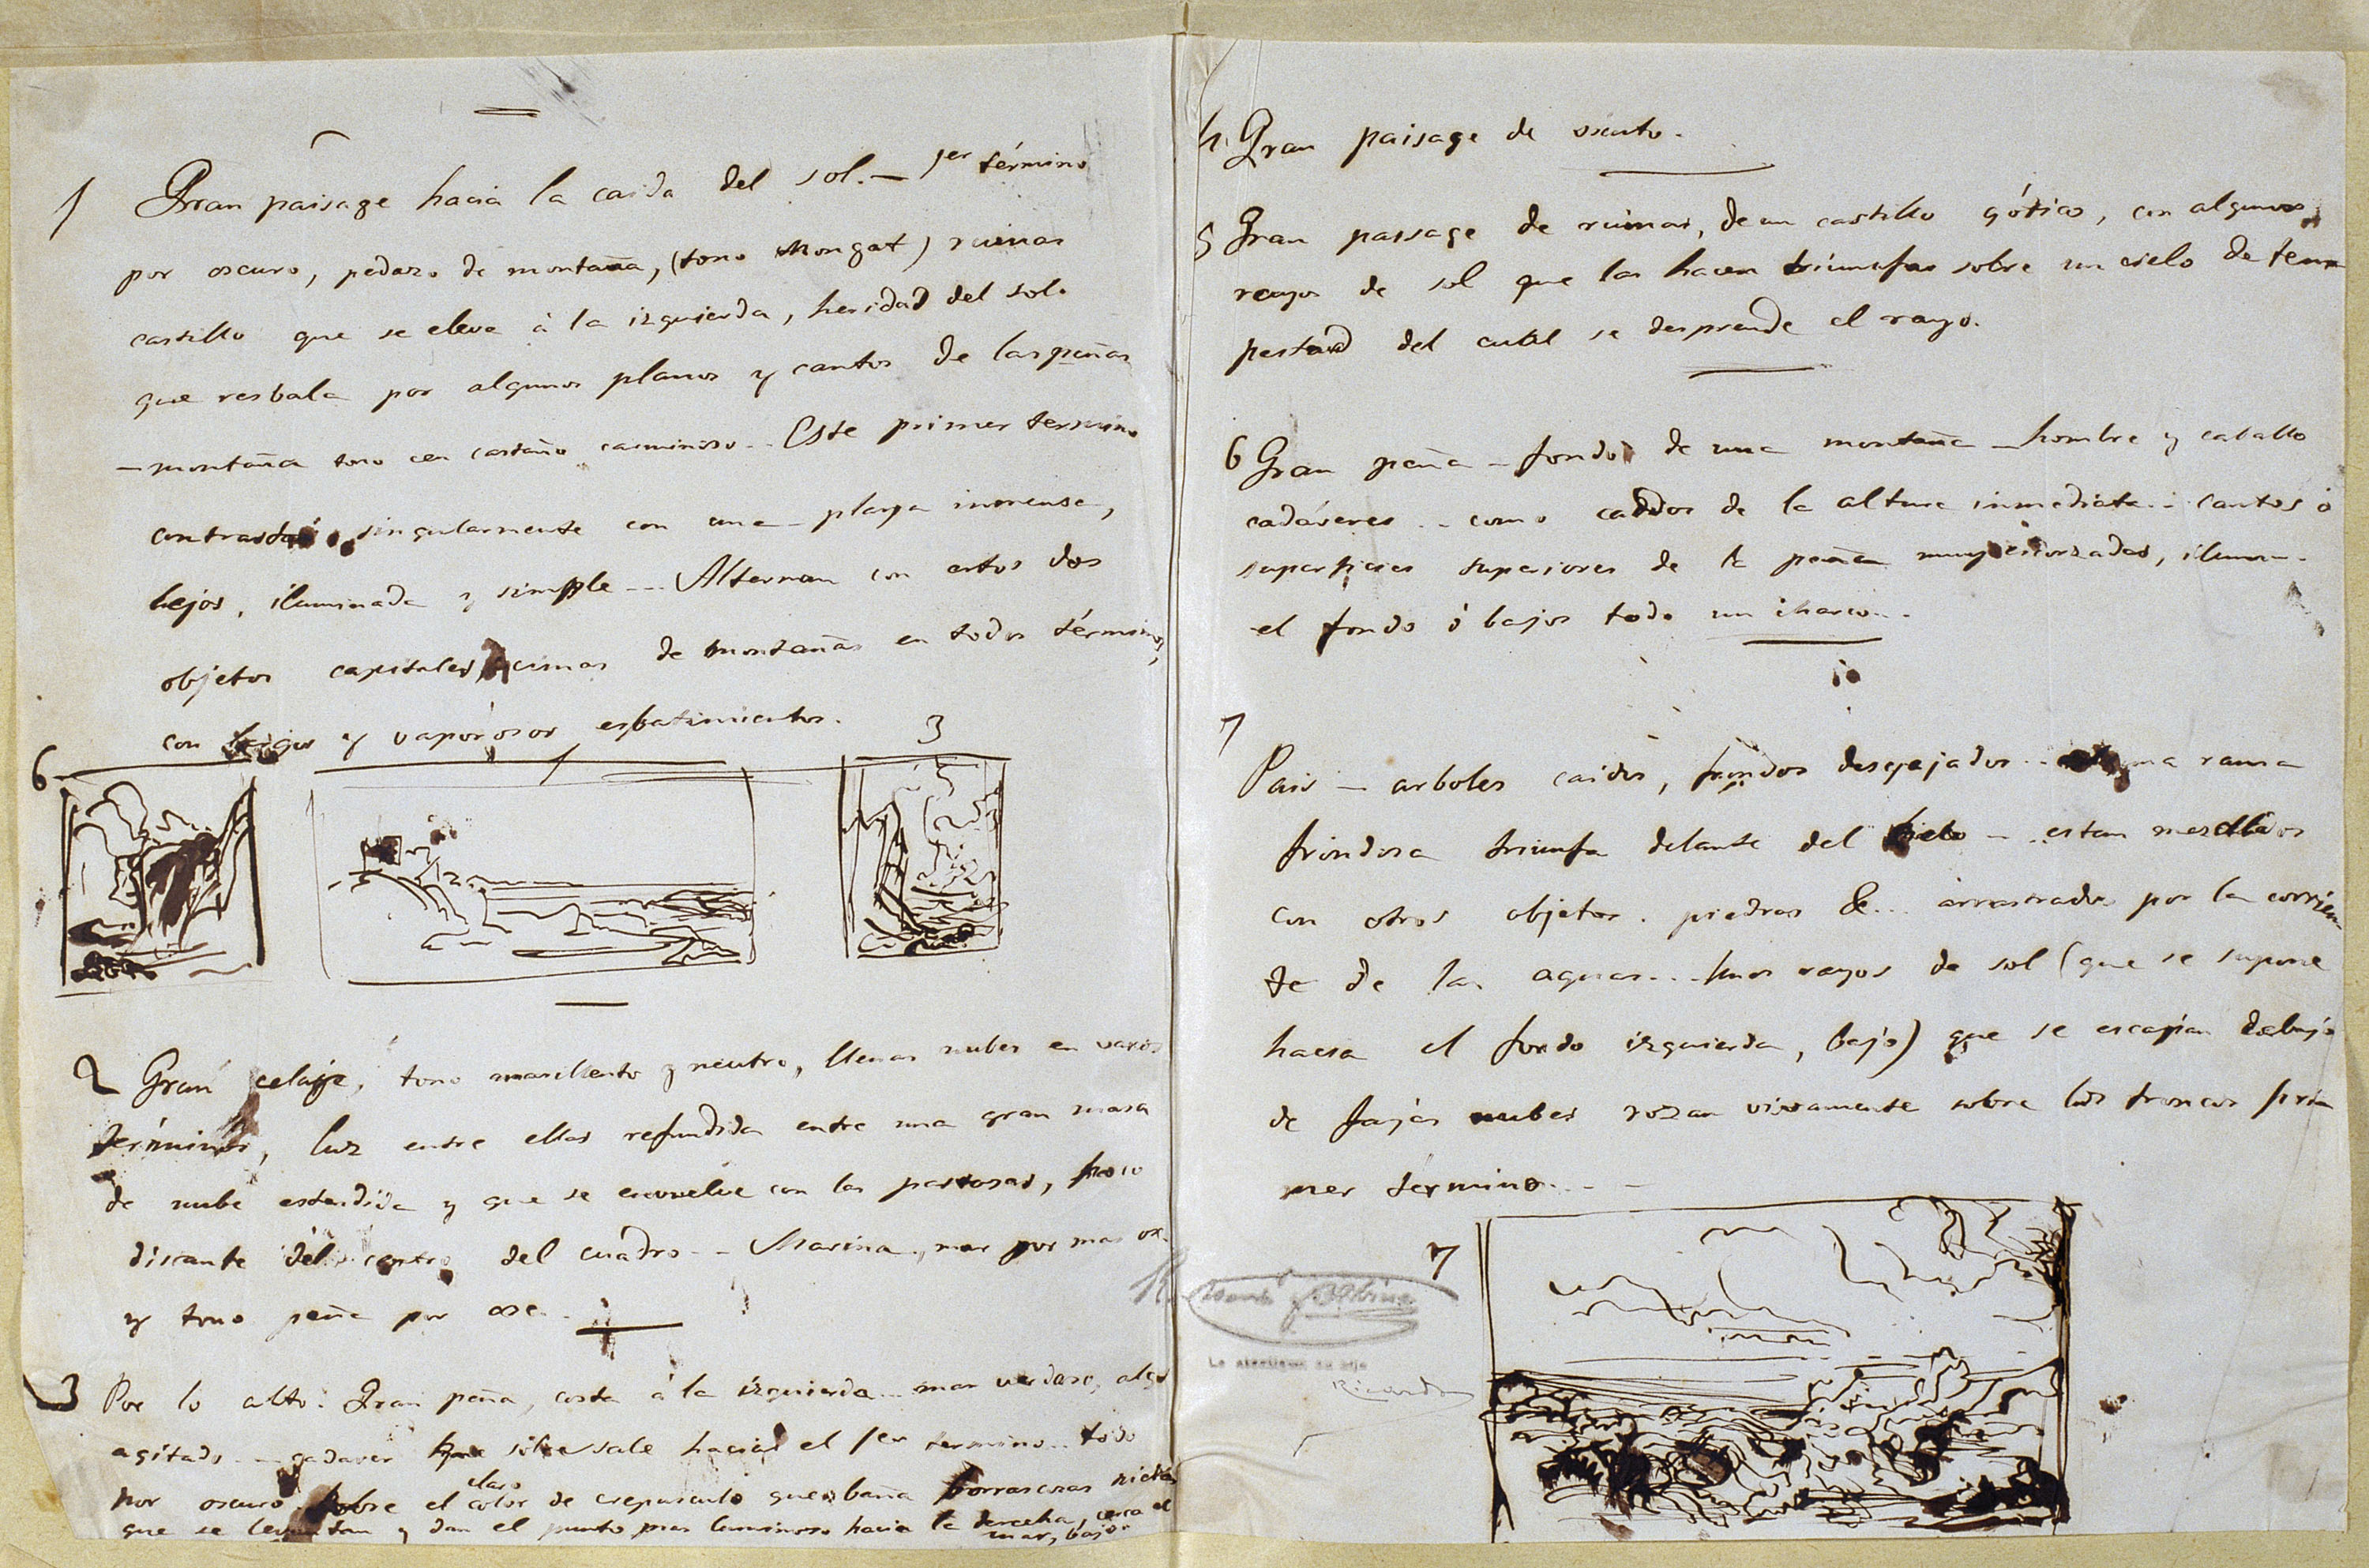 1 Gran paisage hacia la caida del sol. — 1er término
por oscuro, pedazo de montaña, (tono Mongat) ruinas
castillo que se eleve à la izquierda, heridad del sol.
que resbala por algunos planos y cantos de las peñas
— montaña tono en castaño carminoso. - Este primer termino
contrasta singularmente con una playa inmensa,
lejos, iluminada y simple - - - Alternan con estos dos
objetos capitales, cimas de montañas en todos términos,
con y vaporosos esbatimientos.
6 1 3
2 Gran celaje, tono amarillento y neutro, llenas nubes en varios
términos, luz entre ellas refundida entre una gran masa
de nube estendida y que se envuelve con las pastosas, poco
distante del centro del cuadro - - Marina, mar por mas os.
y tono peña por osc.
3 Por lo alto. Gran peña, costa à la izquierda - - mar verdoso, algo
agitado - - cadaver que sobresale hacia el 1er termino - - todo
claro
por oscuro sobre el color de crepusculo que baña borrascosas nieblas
que se levantan y dan el punto mas luminoso hacia la derecha, cerca el
mar, bajo.
4. Gran paisage de
5 Gran paisage de ruinas, de un castillo gótico, con algunos
rayos de sol que las hacen triumfar sobre un cielo de tem
pestad del cual se desprende el rayo.
6 Gran peña - fondo de una montaña - hombre y caballo
cadáveres - - como caidos de la altura inmediata - - cantos ó
superficies superiores de la peña muy ilumin.
el fondo ó bajos todo un charco - -
7
Pais — arboles caidos, fondos despejados - - una rama
frondosa triunfa delante del cielo - - estan mezclados
con otros objetos. piedras &... arrastradas por la corrien
te de las aguas... Unos rayos de sol (que se supone
hacia el fondo izquierda, bajo) que se escapan debajo
de fajas nubes rozan vivamente sobre los troncos pri
mer término - - -
7
Ricardo